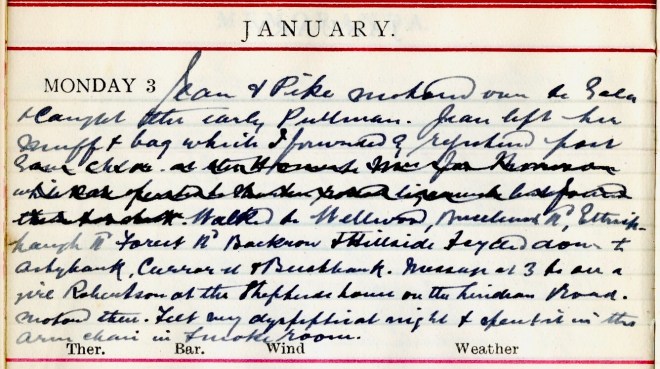 JANUARY.
MONDAY 3 Jean & Pike motored over to Gala
& caught the early Pullman. Jean left her
muff & bag which I forwarded by registered post
Walked to Wellwood, Buccleuch Rd, Ettrick-
haugh Rd Forest Rd Backrow & Hillside down to
Ashybank, Curror St & Bushbank. Message at 3 to see a
girl Robertson at the Shepherds house on the Lindean Road.
Motored there. Felt very dyspeptic at night & spent it in the
arm chair in smoke room.
Ther. Bar. Wind Weather